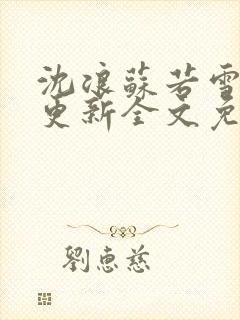 沈浪蘇若雪
更新全文免
劉惠慈